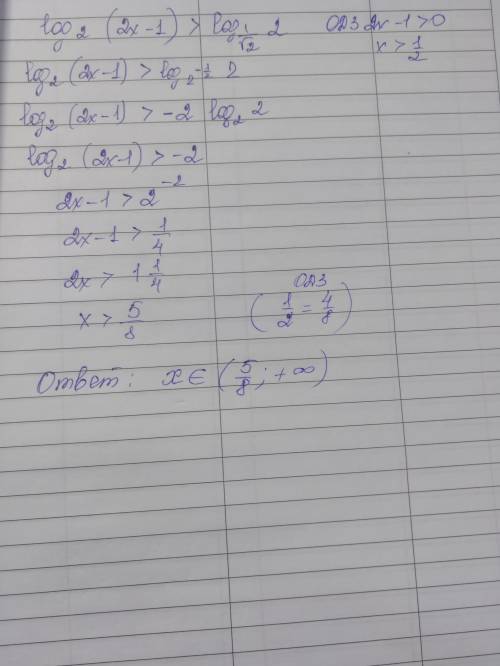 log₂ (2x-1) > log_{1/√2} 2   ОДЗ 2x-1>0
x > 1/2
log₂ (2x-1) > log_{2^{-1/2}} 2
log₂ (2x-1) > -2 log₂ 2
log₂ (2x-1) > -2
2x-1 > 2^{-2}
2x-1 > 1/4
2x > 1 1/4
x > 5/8   ОДЗ (1/2 = 4/8)
Ответ: x ∈ (5/8; +∞)